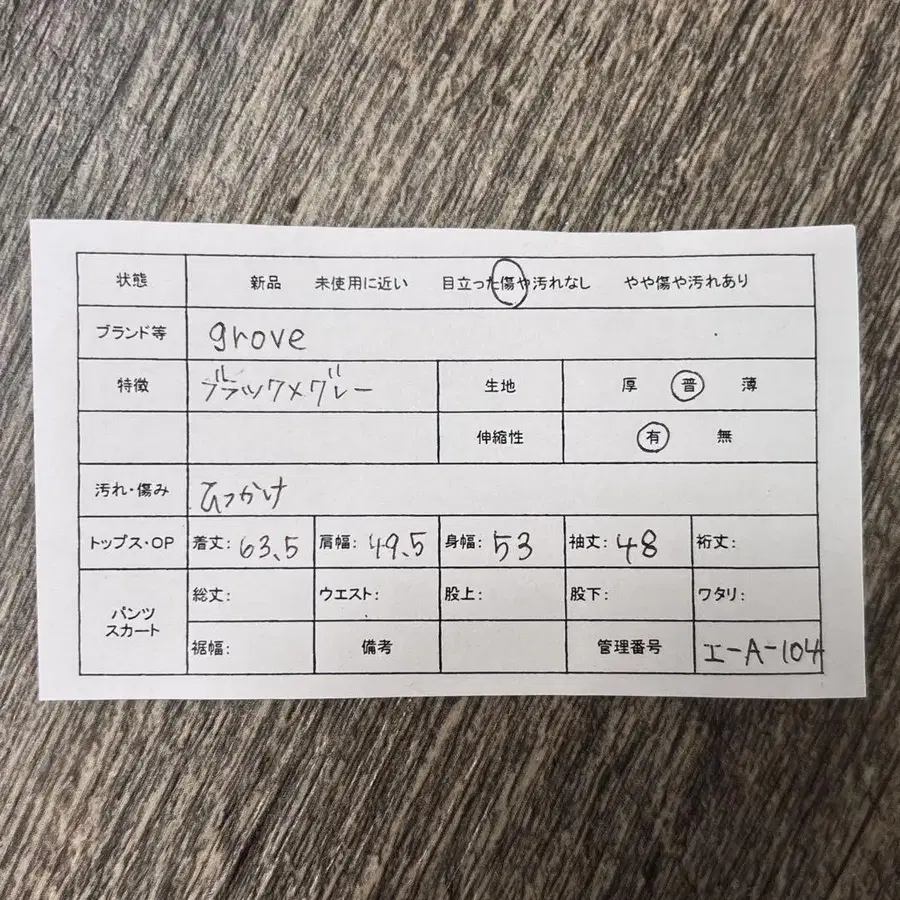 状態 新品 未使用に近い 目立った傷や汚れなし やや傷や汚れあり
ブランド等 grove
特徴 ブラック×グレー 生地 厚 普 薄
伸縮性 有 無
汚れ・傷み ひっかけ
トップス・OP 着丈: 63.5 肩幅: 49.5 身幅: 53 袖丈: 48 裄丈:
パンツ スカート 総丈: ウエスト: 股上: 股下: ワタリ:
裾幅: 備考 管理番号 エ-A-104